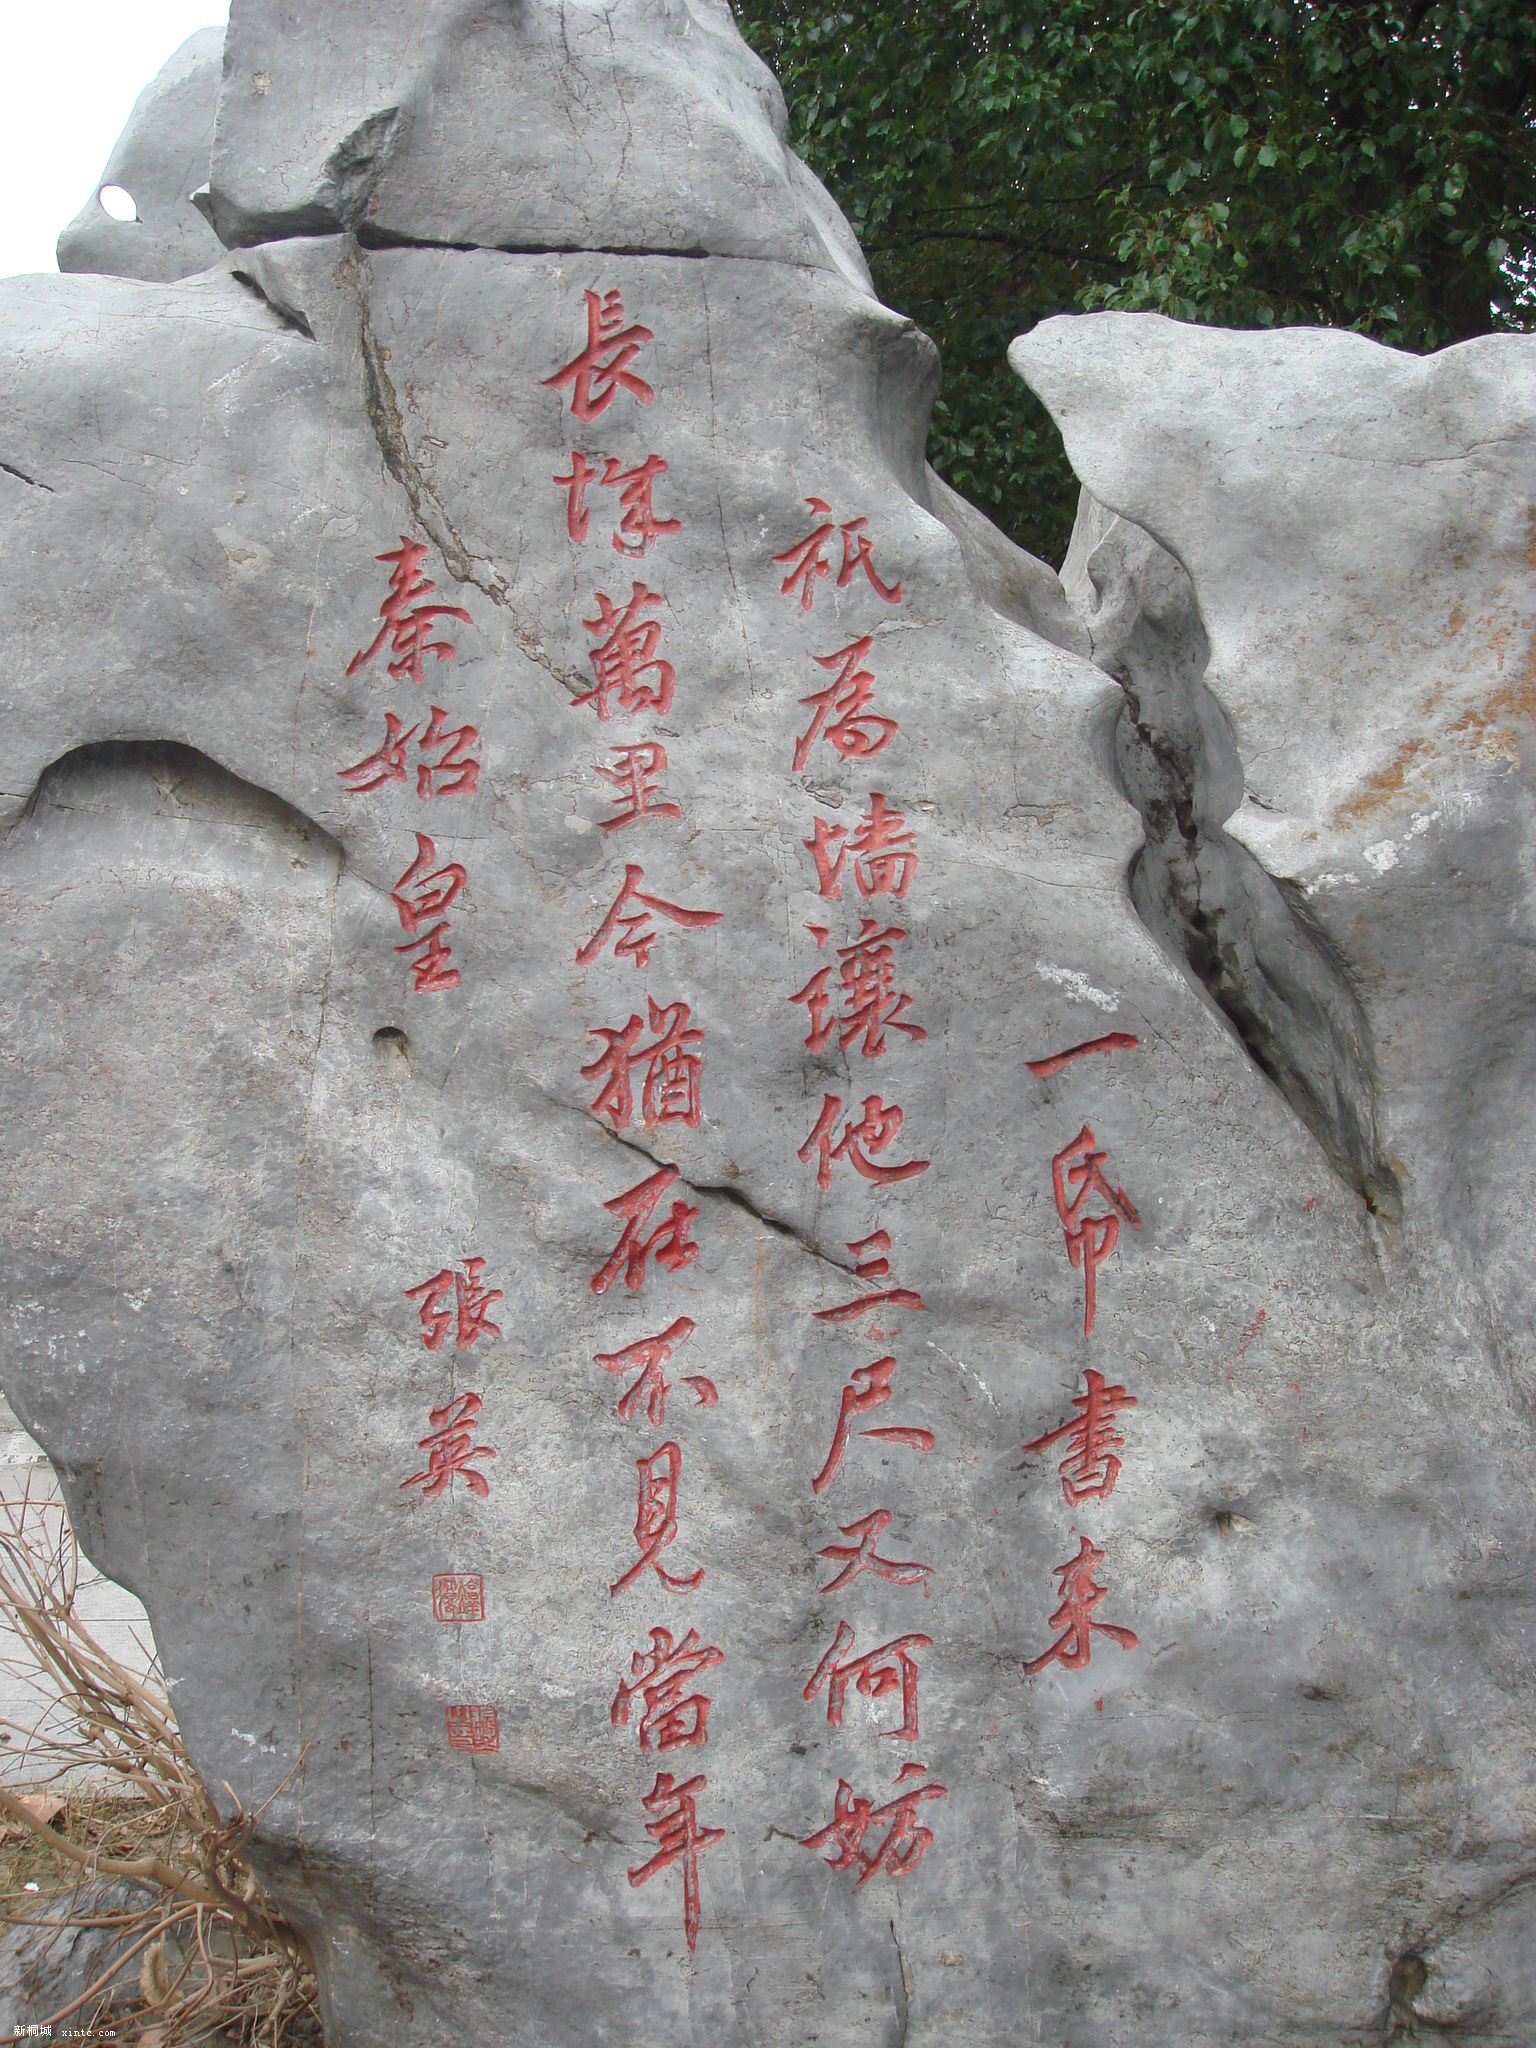 一帋書来
祇為墙讓他三尺又何妨
長城萬里今猶在不見當年
秦始皇
張英
新桐城 xintc.com